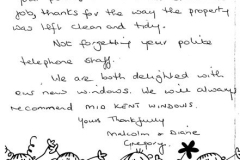 job, thanks for the way the property
was left clean and tidy.
Not forgetting your polite
telephone staff.
We are both delighted with
our new windows. We will always
recommend MID KENT WINDOWS.
Yours Thankfully
Malcolm & Diane
Gregory.